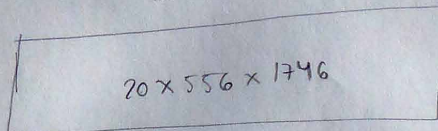 20 × 556 × 1746